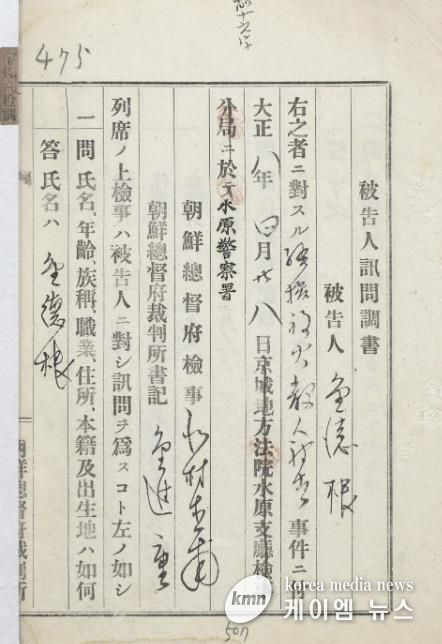 475
被告人訊問調書
被告人 金德根
右之者ニ對スル 放火 殺人 事件ニ付
大正八年四月廿八日京城地方法院水原支廳檢事
分局ニ於テ水原警察署
朝鮮總督府檢事
朝鮮總督府裁判所書記
列席ノ上檢事ハ被告人ニ對シ訊問ヲ爲スコト左ノ如シ
一問 氏名、年齡、族稱、職業、住所、本籍及出生地ハ如何
答 氏名ハ 金德根
朝鮮總督府裁判所
507
korea media news
kmn 케이엠 뉴스